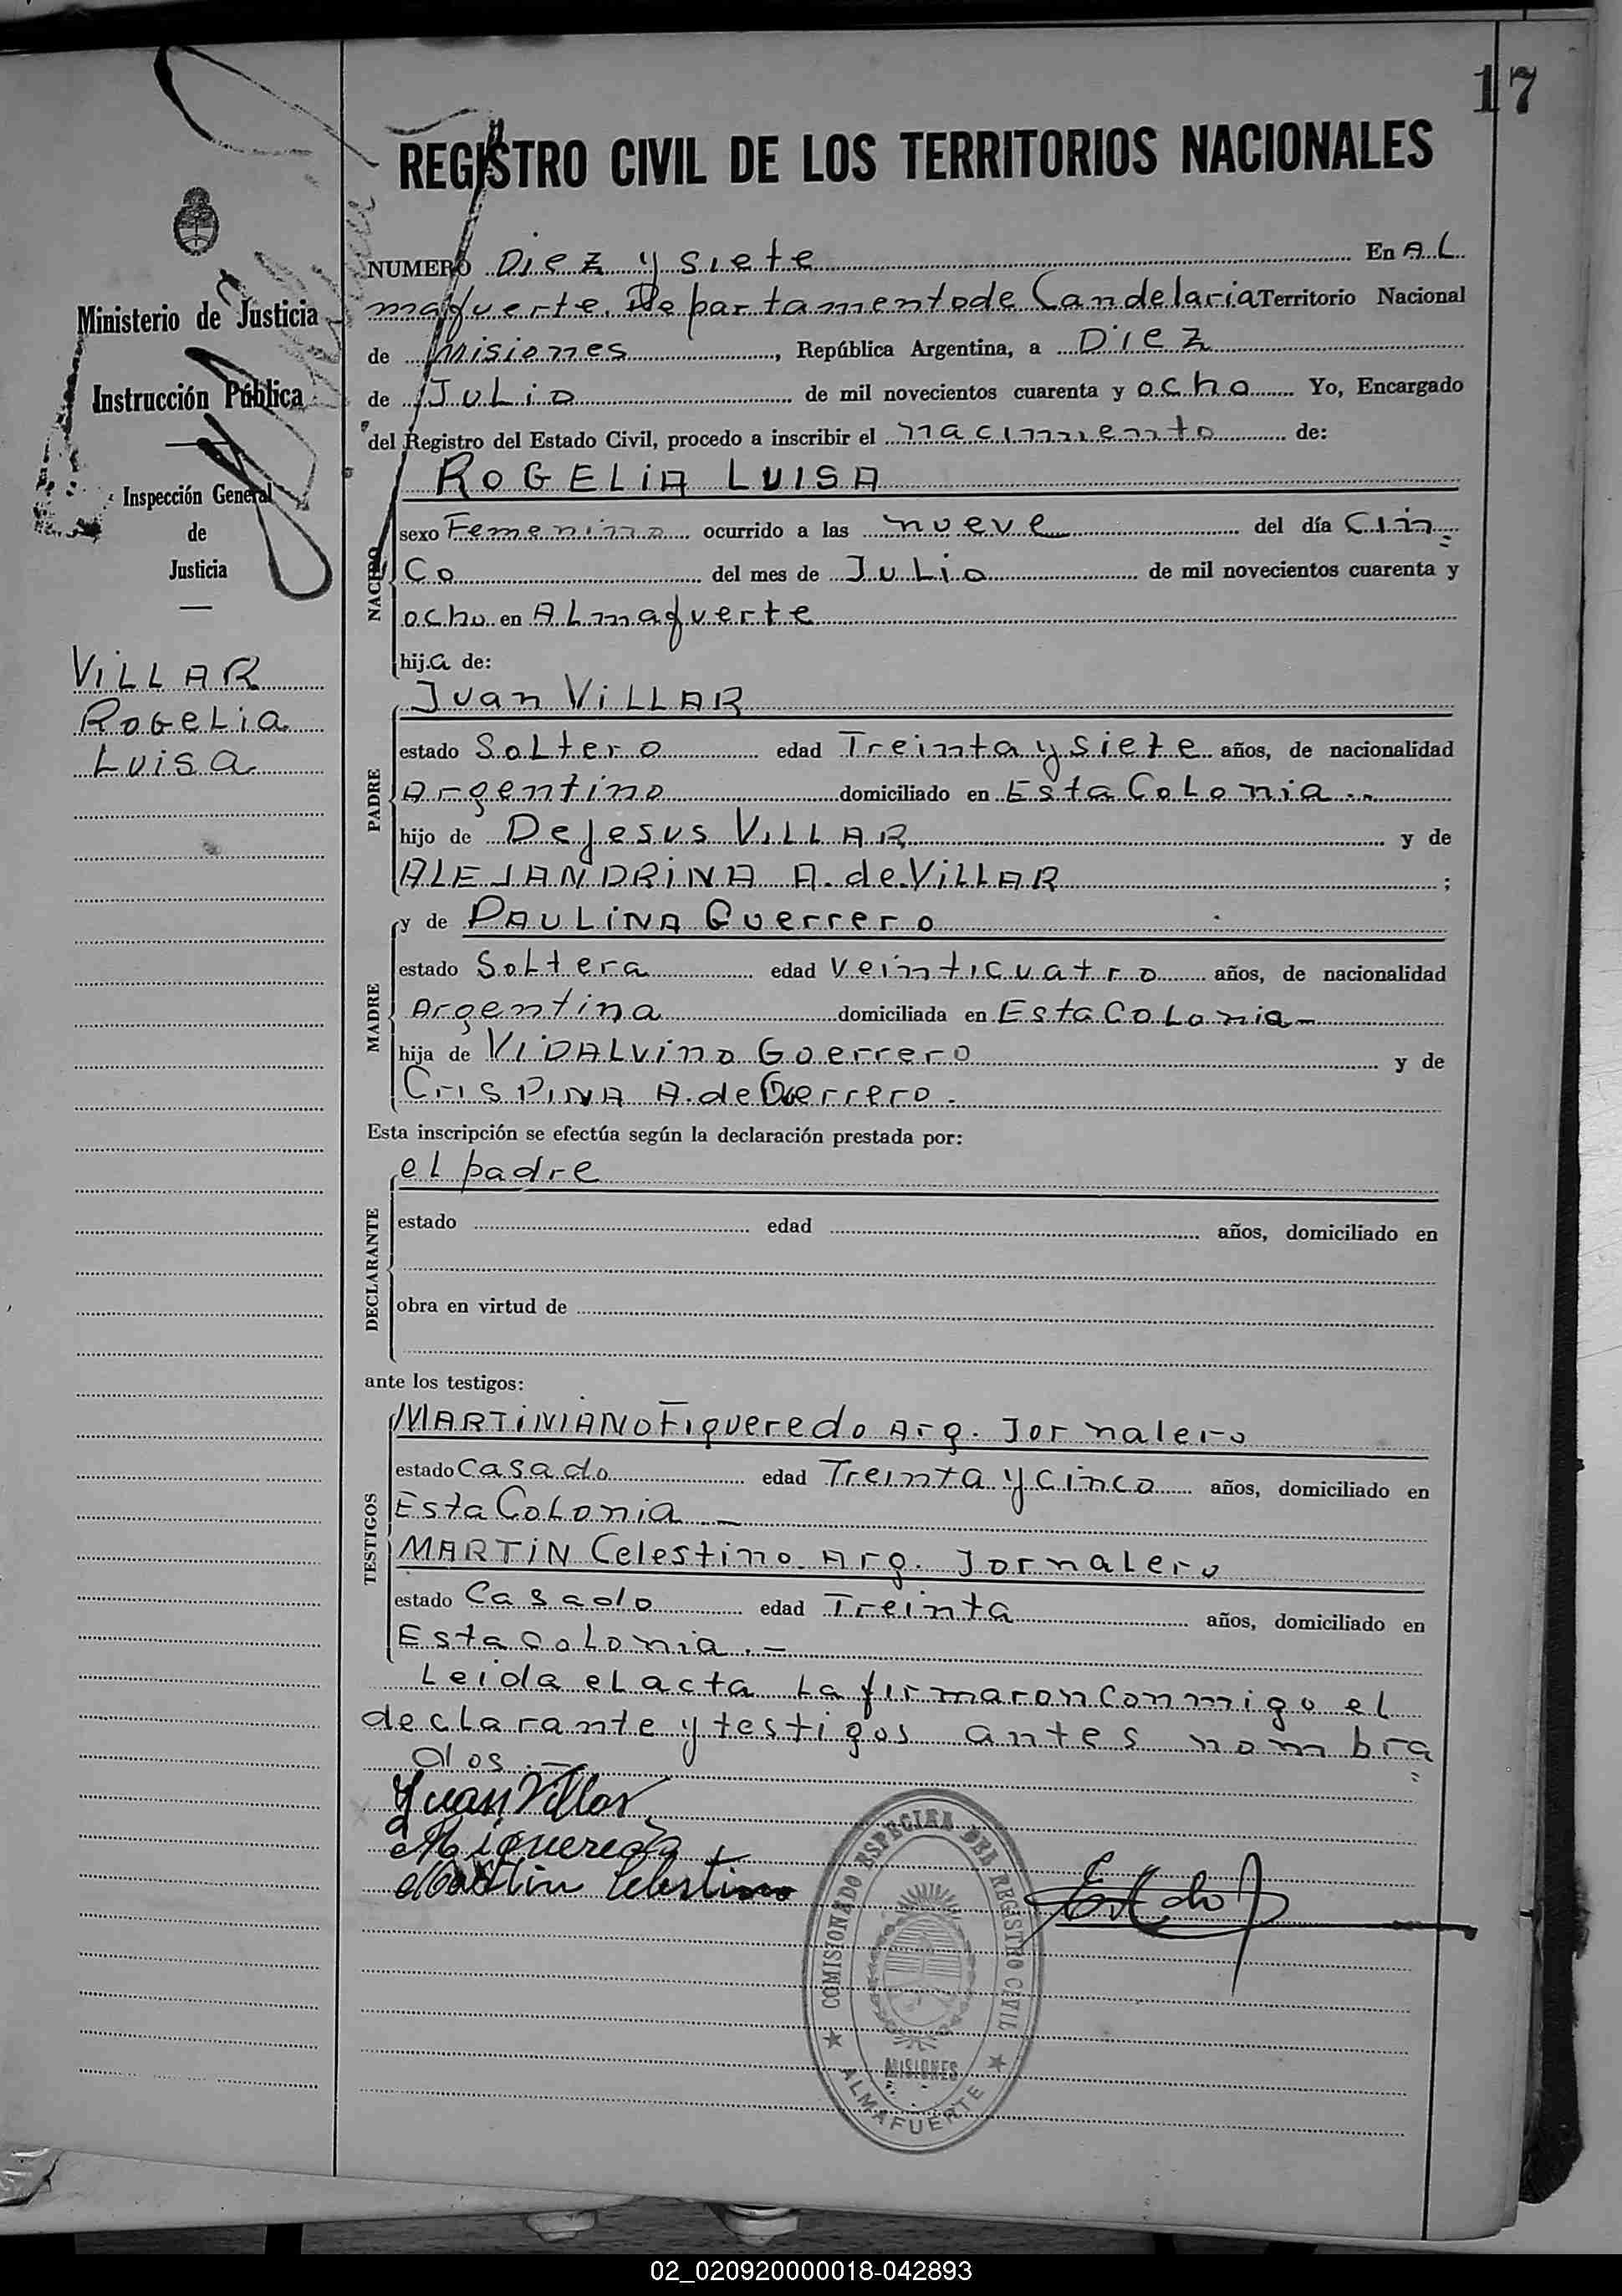 17
REGISTRO CIVIL DE LOS TERRITORIOS NACIONALES
Ministerio de Justicia
Instrucción Pública
Inspección General
de
Justicia
VILLAR
Rogelia
Luisa
NUMERO Diez y siete En AL
mafuerte. Departamento de Candelaria Territorio Nacional
de Misiones, República Argentina, a Diez
de Julio de mil novecientos cuarenta y ocho Yo, Encargado
del Registro del Estado Civil, procedo a inscribir el nacimiento de:
NACIDO
ROGELIA LUISA
sexo Femenino ocurrido a las nueve del día Cin=
co del mes de Julio de mil novecientos cuarenta y
ocho en ALmafuerte
hija de:
PADRE
Juan VILLAR
estado Soltero edad Treinta y siete años, de nacionalidad
Argentino domiciliado en Esta Colonia..
hijo de De Jesus VILLAR y de
ALEJANDRINA A. de VILLAR ;
MADRE
y de PAULINA Guerrero
estado Soltera edad veinticuatro años, de nacionalidad
Argentina domiciliada en Esta Colonia-
hija de VIDALvino Goerrero y de
CrisPINA A. de Guerrero.
Esta inscripción se efectúa según la declaración prestada por:
DECLARANTE
el padre
estado edad años, domiciliado en
obra en virtud de
ante los testigos:
TESTIGOS
MARTINIANO Figueredo Arg. Jornalero
estado casado edad Treinta y cinco años, domiciliado en
Esta Colonia.-
MARTIN Celestino Arg. Jornalero
estado Casado edad Treinta años, domiciliado en
Esta colonia.-
Leida el acta la firmaron conmigo el
declarante y testigos antes nombra=
dos.-
Juan Villar
M Figueredo
Martin Celestino
COMISIONADO ESPECIAL DEL REGISTRO CIVIL
MISIONES
ALMAFUERTE
02_020920000018-042893